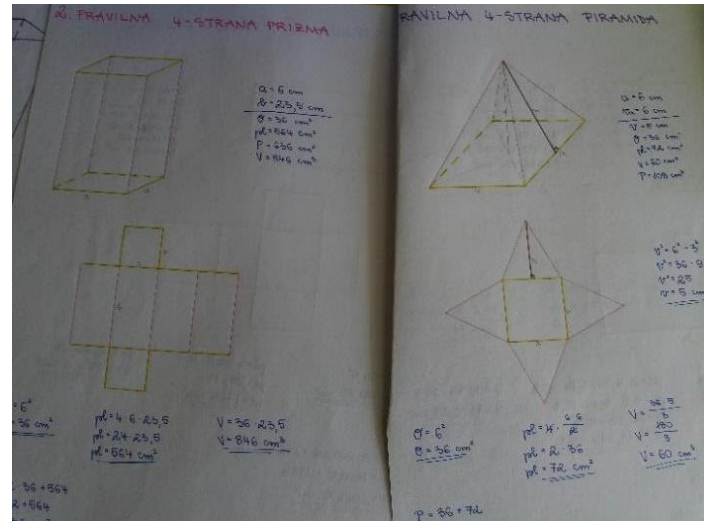 2. PRAVILNA 4-STRANA PRIZMA
a = 6 cm
b = 23,5 cm
O = 36 cm²
pl = 564 cm²
P = 636 cm²
V = 846 cm³
= 6²
= 36 cm²
pl = 4·6·23,5
pl = 24·23,5
pl = 564 cm²
V = 36·23,5
V = 846 cm³
· 36 + 564
2 + 564
RAVILNA 4-STRANA PIRAMIDA
a = 6 cm
= 6 cm
O = 36 cm²
pl = 72 cm²
V = 60 cm³
P = 108 cm²
v² = 6² - 3²
v² = 36 - 9
v² = 25
v = 5 cm
O = 6²
O = 36 cm²
pl = 4 · 6·6/2
pl = 2·36
pl = 72 cm²
V = 36·5/3
V = 180/3
V = 60 cm³
P = 36 + 72